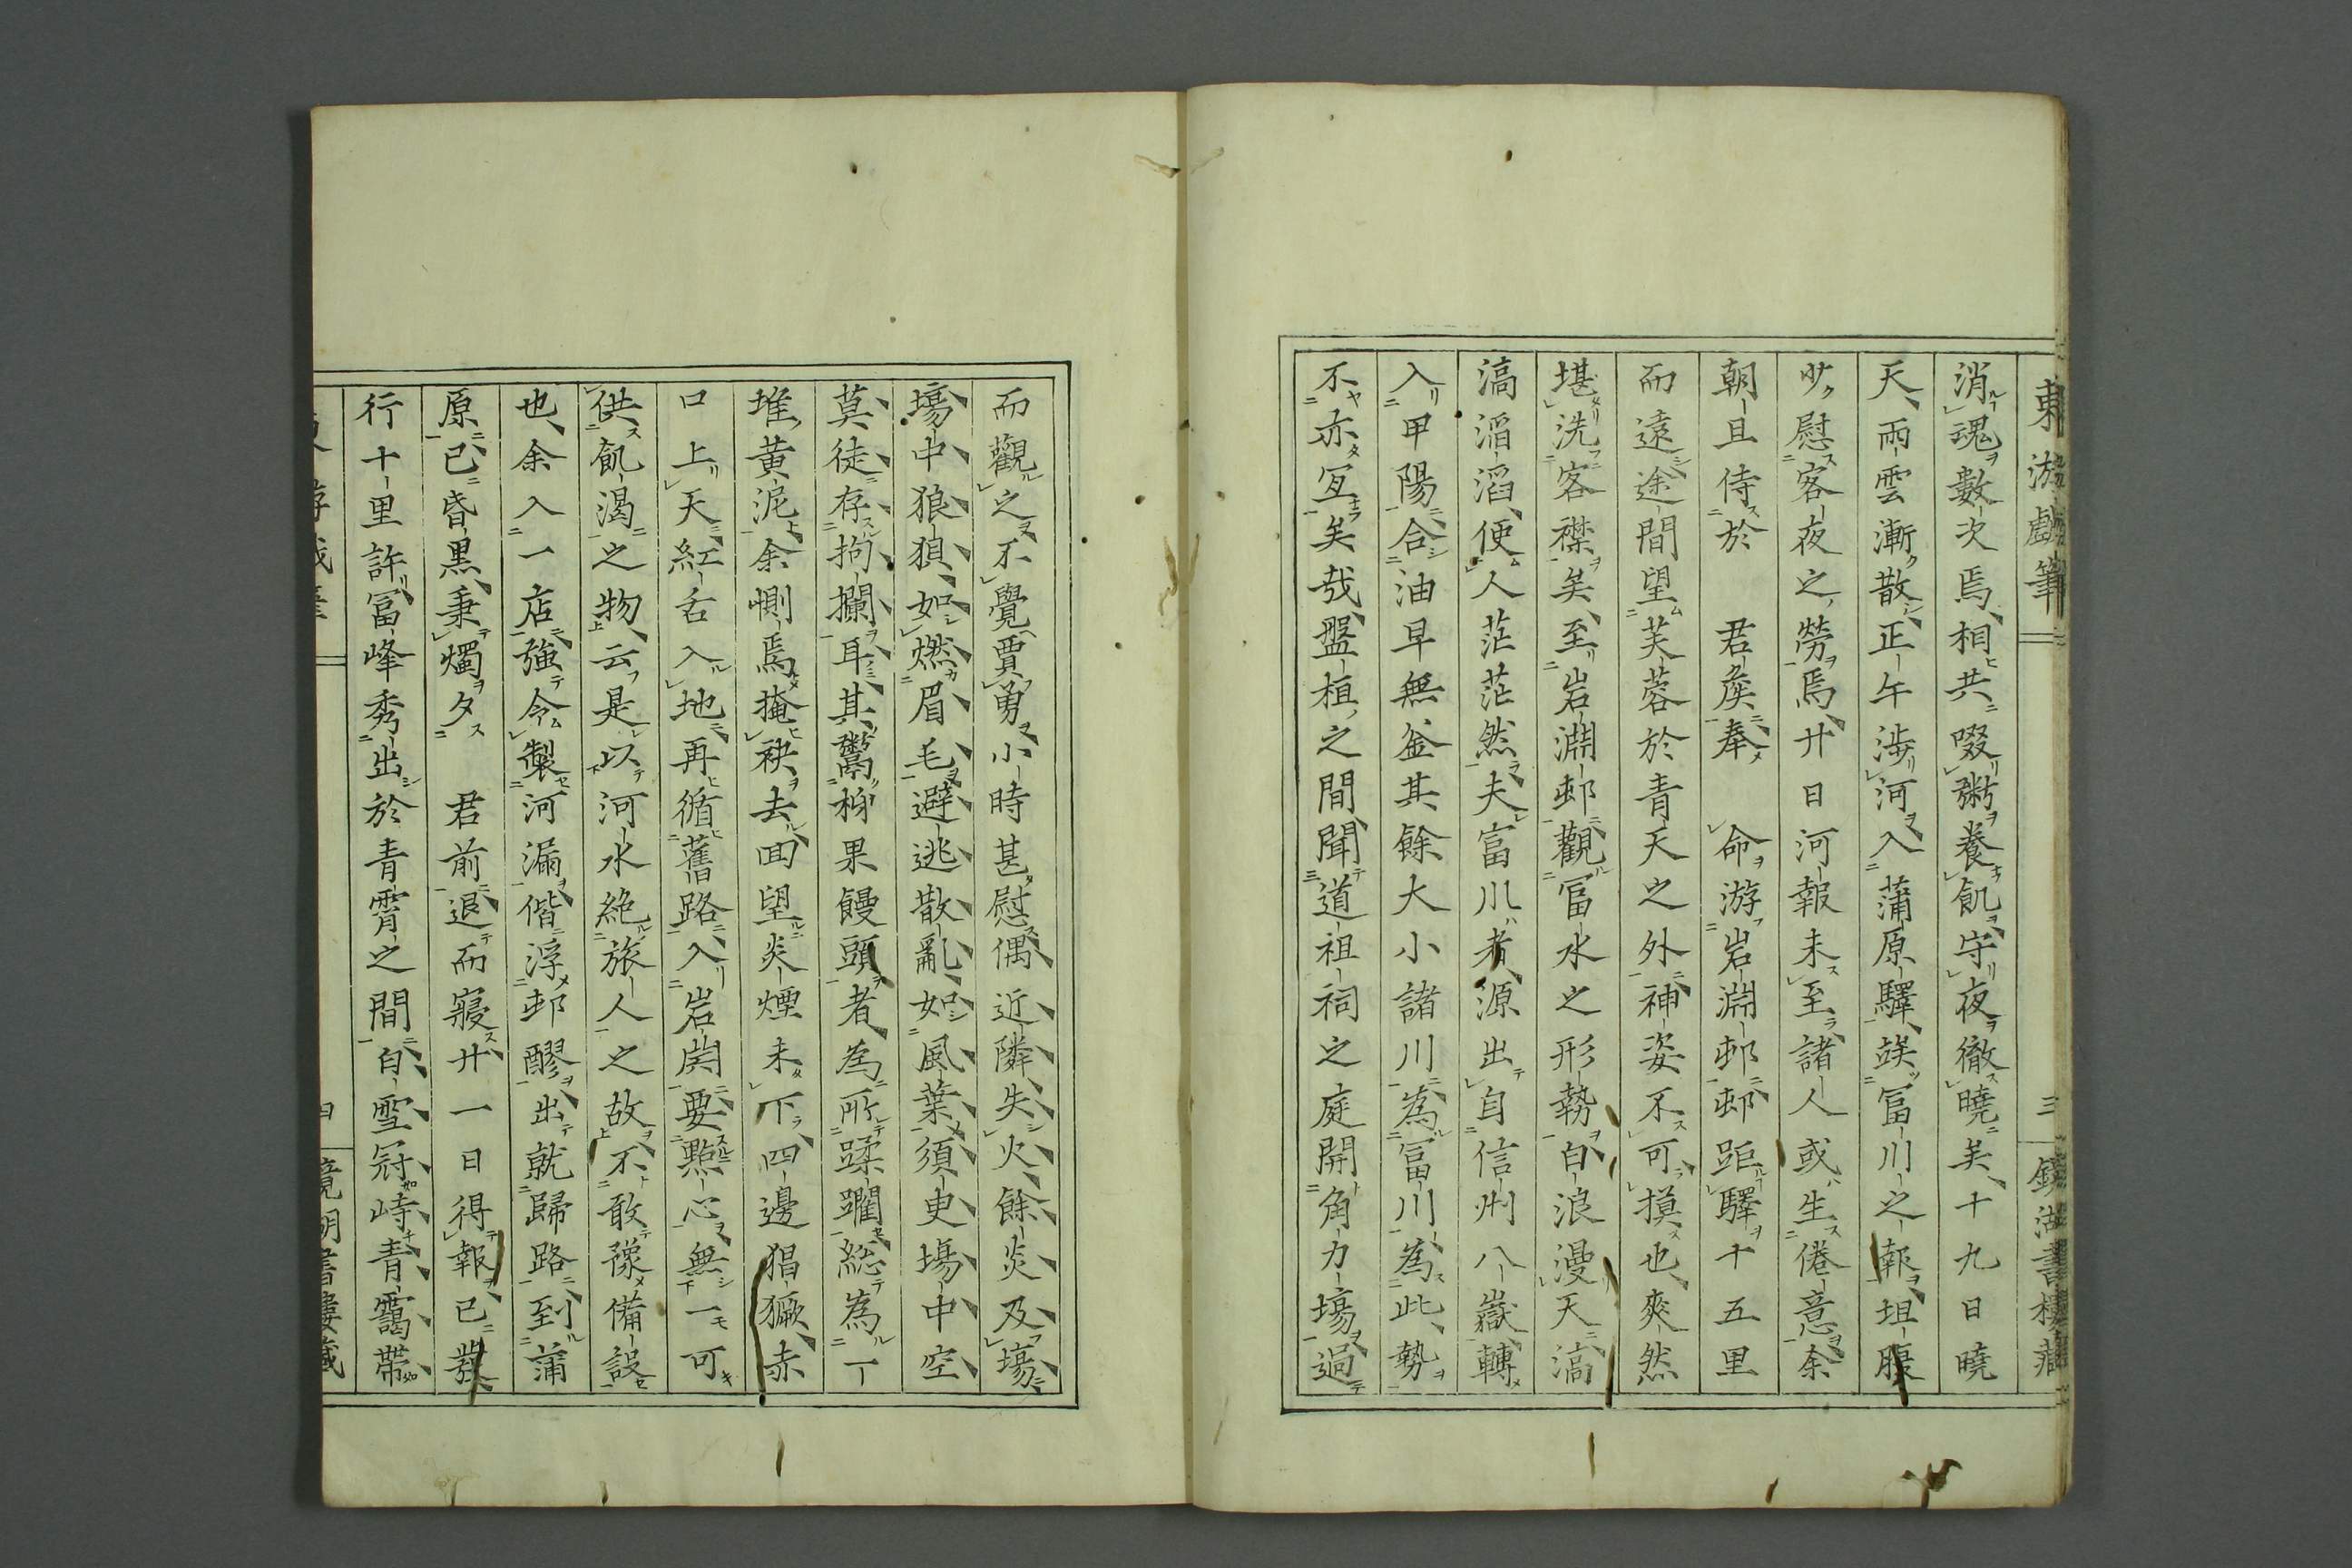 東游戲筆 三 鏡湖書樓藏
消魂數次焉相共啜粥養飢守夜徹曉矣十九日曉
天雨雲漸散正午涉河入蒲原驛竢冨川之報坦腹
少慰客夜之勞焉廿日河報未至諸人或生倦意余
朝旦侍於 君矦奉 命游岩淵邨邨距驛十五里
而遠途間望芙蓉於青天之外神姿不可摸也爽然
堪洗客襟矣至岩淵邨觀冨水之形勢白浪漫天滈
滈滔滔便人茫茫然夫富川者源出自信州八嶽轉
入甲陽合油早無釜其餘大小諸川為冨川為此勢
不亦宜矣哉盤桓之間聞道祖祠之庭開角力塲過
而觀之不覺賈勇小時甚慰偶近隣失火餘炎及塲
塲中狼狽如燃眉毛避逃散亂如風葉須吏塲中空
莫徒存拘攔耳其鬻栁果饅頭者為所蹂躙総為丁
堆黃泥余惻焉掩袂去回望炎煙未下四邊猖獗赤
口上天紅舌入地再循舊路入岩淵要點心無一可
供飢渴之物云是以河水絶旅人之故不敢豫備設
也余入一店強令製河漏偕浮邨醪出就歸路到蒲
原已昏黒秉燭夕 君前退而寢廿一日得報已發
行十里許冨峰秀出於青霄之間白雪冠峙青靄帶